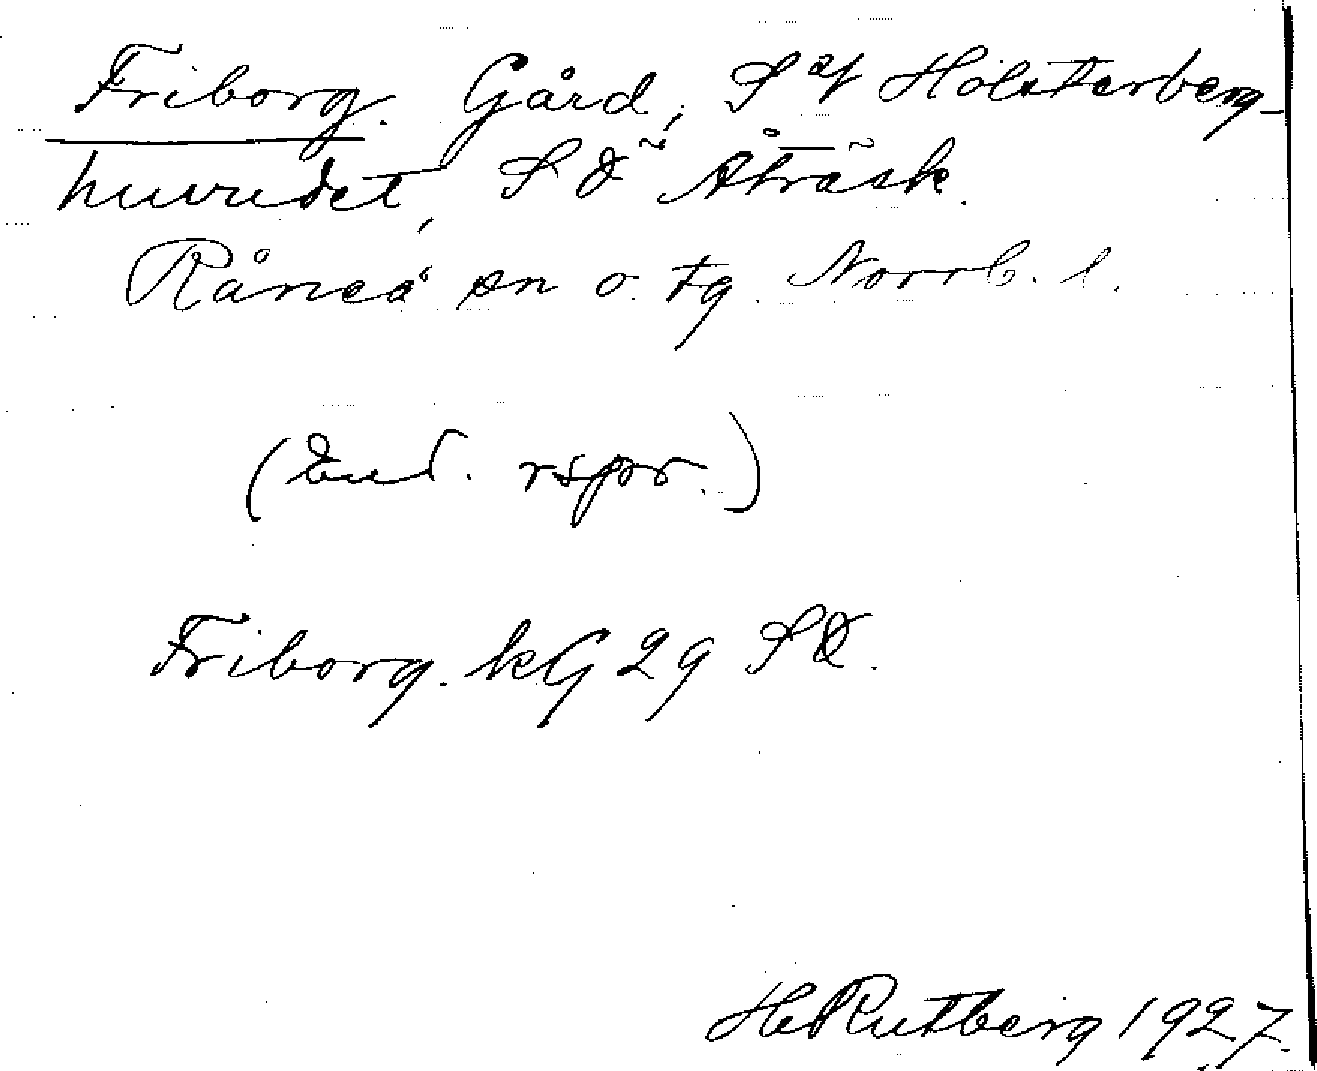 Friborg. Gård, S af Holsterberg-
huvudet, SÖ Åträsk.
Råneå sn o. tg. Norrb. l.
(End. rspr.)
Friborg. kG 29 SÖ.
H Rutberg 1927.